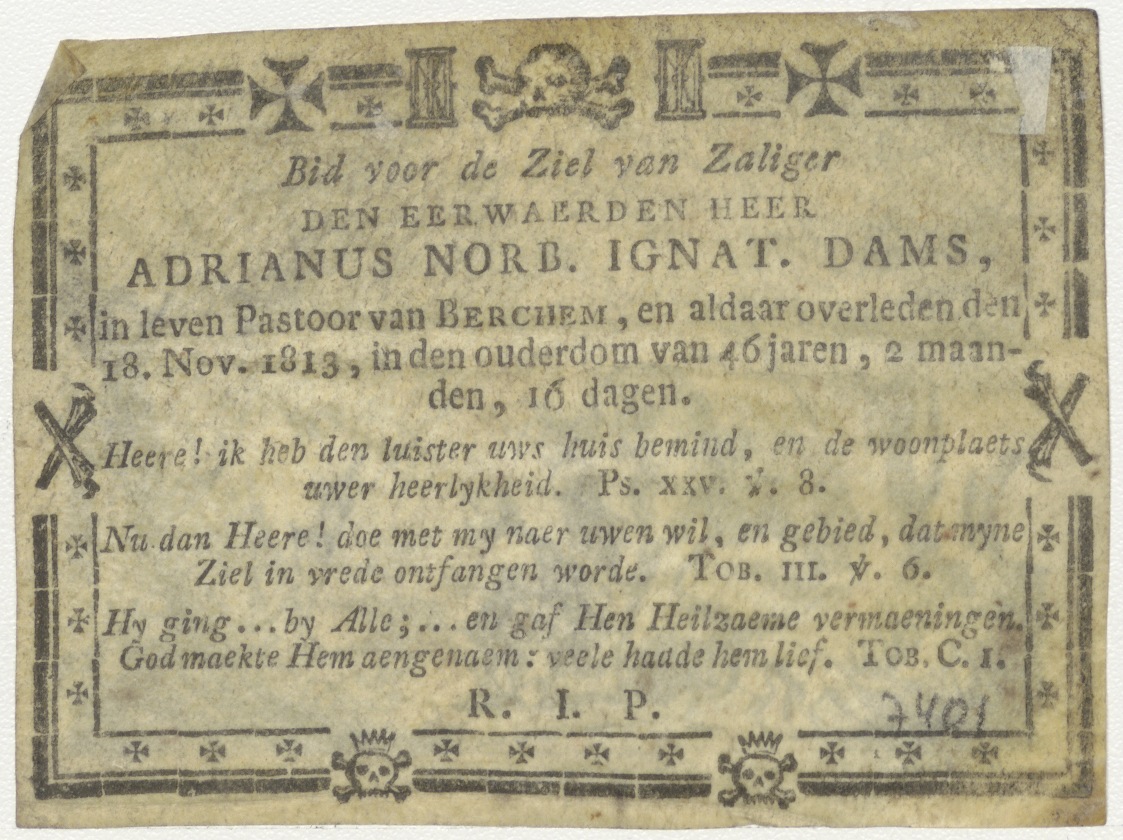 Bid voor de Ziel van Zaliger
DEN EERWAERDEN HEER
ADRIANUS NORB. IGNAT. DAMS,
in leven Pastoor van BERCHEM, en aldaar overleden den
18. Nov. 1813, in den ouderdom van 46 jaren, 2 maan-
den, 16 dagen.
Heere! ik heb den luister uws huis bemind, en de woonplaets
uwer heerlykheid. Ps. xxv. ℣. 8.
Nu dan Heere! doe met my naer uwen wil, en gebied, dat myne
Ziel in vrede ontfangen worde. TOB. III. ℣. 6.
Hy ging...by Alle;...en gaf Hen Heilzaeme vermaeningen.
God maekte Hem aengenaem: veele hadde hem lief. TOB. C. I.
R. I. P.
7401